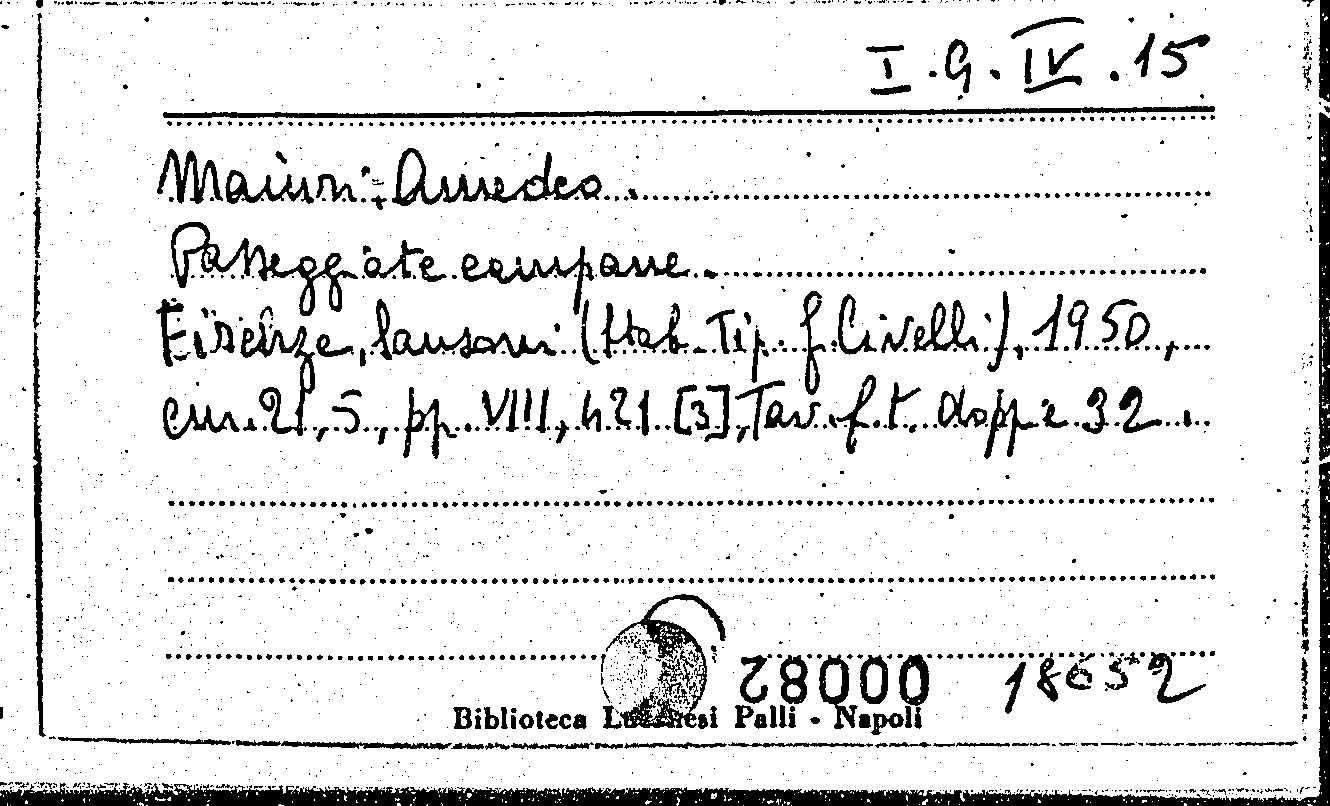 I.G.IV.15
Maiuri Amedeo.
Passeggiate campane.
Firenze, Sansoni (Stab. Tip. f. Civelli), 1950,
cm. 21,5, pp. VIII, 421 [3], Tav. f. t. dopp. e 32.
000082 18652
Biblioteca Lucchesi Palli - Napoli